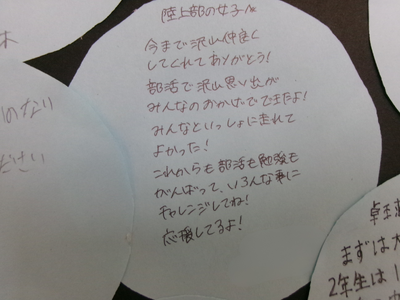 陸上部の女子へ
今まで沢山仲良く
してくれてありがとう!
部活で沢山思い出が
みんなのおかげでできたよ!
みんなといっしょに走れて
よかった!
これからも部活も勉強も
がんばって、いろんな事に
チャレンジしてね!
応援してるよ!
木
のなり
ださい
卓球
まずは大
2年生は1